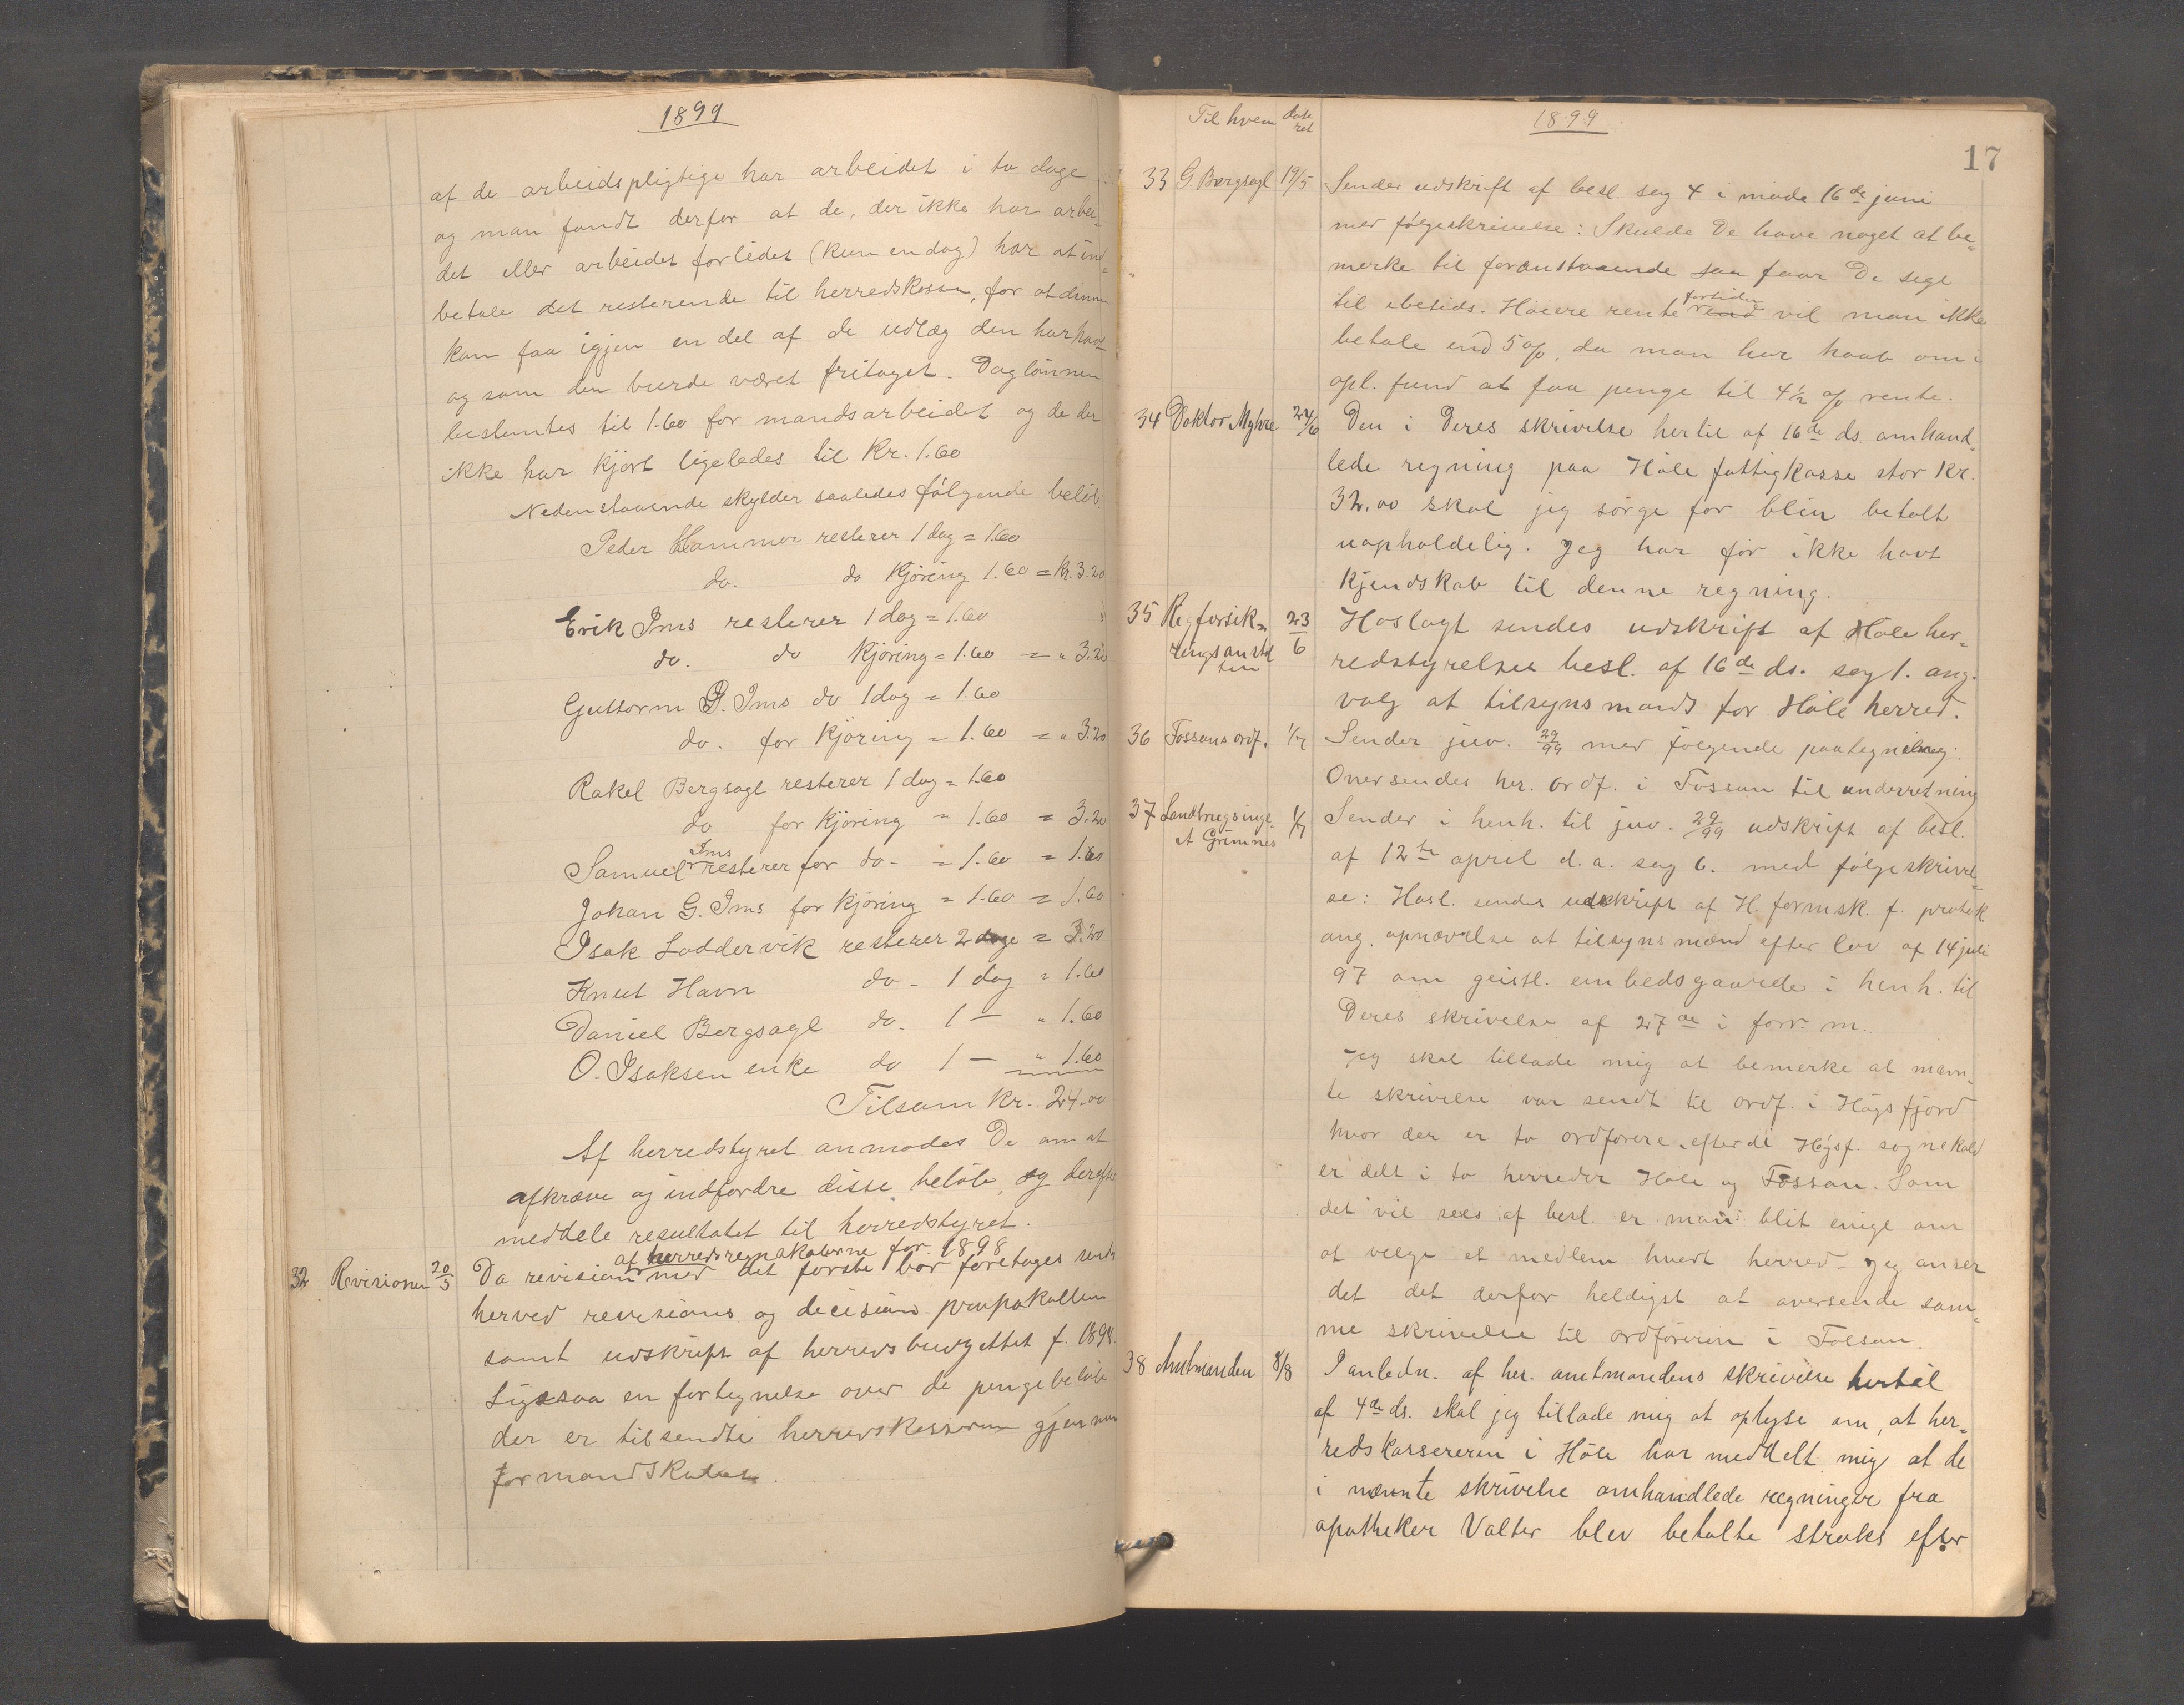 1899
af de arbeidspligtige har arbeidet i to dage
og man fandt derfor at de, der ikke har arbei-
det eller arbeidet forlidet (kun en dag) har at ind-
betale det resterende til herredskassen, for at denne
kan faa igjen en del af de udlæg den har havt
og som den burde været fritaget. Daglönnen
bestemtes til 1.60 for mandsarbeidet og de der
ikke har kjört ligeledes til Kr. 1.60
Nedenstaaende skylder saaledes fölgende belöb
Peder Hammer resterer 1 dag = 1.60
do. do Kjöring 1.60 = Kr. 3.20
Erik Ims resterer 1 dag = 1.60
do. do Kjöring = 1.60 = " 3.20
Guttorm G. Ims do 1 dag = 1.60
do. for Kjöring = 1.60 = " 3.20
Rakel Bergsagl resterer 1 dag = 1.60
do for Kjöring = 1.60 = 3.20
Samuel Ims resterer for do - = 1.60 = 1.60
Johan G. Ims for Kjöring = 1.60 = 1.60
Isak Loddervik resterer 2 dage = 3.20
Knut Havn do - 1 dag = 1.60
Daniel Bergsagl do. 1 — " 1.60
O. Isaksen enke do 1 — " 1.60
Tilsam Kr. 24.00
Af herredstyret anmodes De om at
afkræve og indfordre disse belöb, og derefter
meddele resultatet til herredstyret.
af herredsregnskaberne for 1898
32 Revisionen 20/5 Da revision med det förste bör foretages sendes
herved revisions og decisions
samt udskrift af herredsbudgettet f. 1898
Ligesaa en fortegnelse over de pengebelöb
der er tilsendte herredskassereren gjennem
formandskabet.
Til hvem date ret 1899
17
33 G. Bergsagl 19/5 Sender udskrift af besl. sag 4 i möde 16de juni
med fölgeskrivelse: Skulde De have noget at be-
merke til foranstaaende saa faar De sige
til ibetids. Höiere rente fortiden vil man ikke
betale end 5 %, da man har haab om i
opl. fund at faa penge til 4½ % rente.
34 Doktor Myhre 24/6 Den i Deres skrivelse hertil af 16de ds. omhand-
lede regning paa Höle fattigkasse stor Kr.
32.00 skal jeg sörge for blir betalt
uopholdelig. Jeg har för ikke havt
Kjendskab til denne regning.
35 Rigforsik- 23/6 Hoslagt sendes udskrift af Höle her-
ringsanstal
ten
redstyrelses besl. af 16de ds. sag 1. ang.
valg at tilsynsmand for Höle herred.
36 Fossans ordf. 1/7 Sender juv. 29/99 med fölgende paategning:
Oversendes hr. ordf. i Fossan til underretning
37 Landbrugsinge. 1/7 Sender i henh. til juv. 29/99 udskrift af besl.
A Grimnes
af 12te april d.a. sag 6. med fölgeskrivel-
se: Hosl. sendes udskrift af H. formsk. f. protok
ang. opnævelse at tilsynsmænd efter lov af 14 juli
97 om geistl. embedsgaarde i henh. til
Deres skrivelse af 27de i forr. m.
Jeg skal tillade mig at bemerke at nævn-
te skrivelse var sendt til ordf. i Högsfjord
hvor der er to ordförere, efterdi Högsf. sognekald
er delt i to herreder Höle og Fossan. Som
det vil sees af besl. er man blit enige om
at velge et medlem hvert herred. Jeg anser
det det derfor heldigst at oversende sam-
me skrivelse til ordföreren i Fossan.
38 Amtmanden 8/8 I anledn. af hr. amtmandens skrivelse hertil
af 4de ds. skal jeg tillade mig at oplyse om, at her-
redskassereren i Höle har meddelt mig at de
i nævnte skrivelse omhandlede regninger fra
apotheker Valter blev betalte straks efter